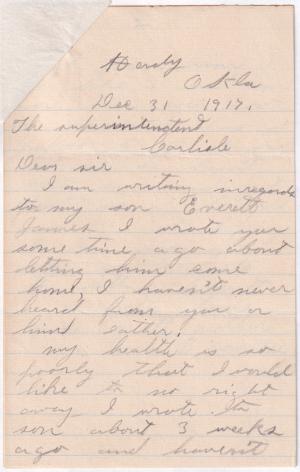 Hardy
Okla
Dec 31 1917.
The superintendent
Carlisle
Dear sir
I am writing inregards
to my son Everett
James I wrote you
some time ago about
letting him come
home, I haven't never
heard from you or
him eather.
my health is so
poorly that I would
like to no right
away I wrote
son about 3 weeks
ago and haven't